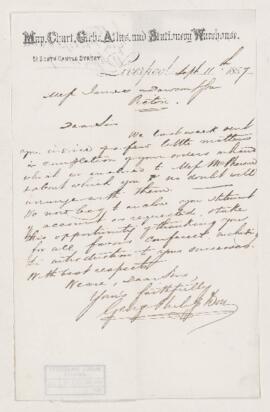 Map, Chart, Globe, Atlas, and Stationery Warehouse.
51 South Castle Street
Liverpool Sept 11th 1857
Mess James
Picton
Dear Sirs
We last week sent
you invoice of a few little matters
in completion of your orders
which we to Mess
about which you no doubt will
arrange with them.
We now beg to enclose you statement
of account as requested, & take
this opportunity of thanking you
for all favors conferred, including
introduction to your successors.
With best respects
We are, Dear Sirs,
Yours faithfully
George Philip & Son